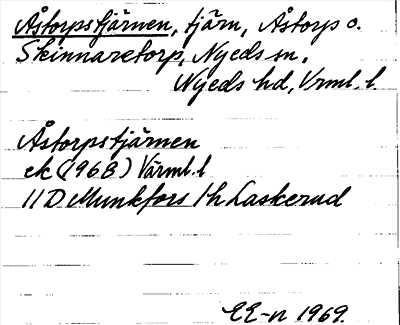 Åstorpstjärnen, tjärn, Åstorp o.
Skinnaretorp, Nyeds sn,
Nyeds hd, Vrml. l.
Åstorpstjärnen
ek (1968) Värml. l
11 D Munkfors 1h Laskerud
EE-n 1969.